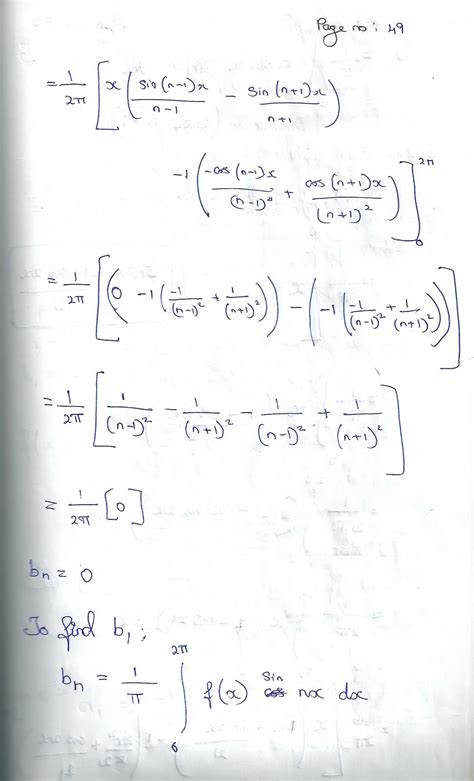 Page no: 49
= 1/2π [ x ( sin(n-1)x/n-1 - sin(n+1)x/n+1 )
-1 ( -cos(n-1)x/(n-1)² + cos(n+1)x/(n+1)² ) ]₀^2π
= 1/2π [ ( 0 -1 ( -1/(n-1)² + 1/(n+1)² ) ) - ( -1 ( -1/(n-1)² + 1/(n+1)² ) ) ]
= 1/2π [ 1/(n-1)² - 1/(n+1)² - 1/(n-1)² + 1/(n+1)² ]
= 1/2π [0]
bₙ = 0
To find b₁;
bₙ = 1/π ∫₀^2π f(x) sin nx dx